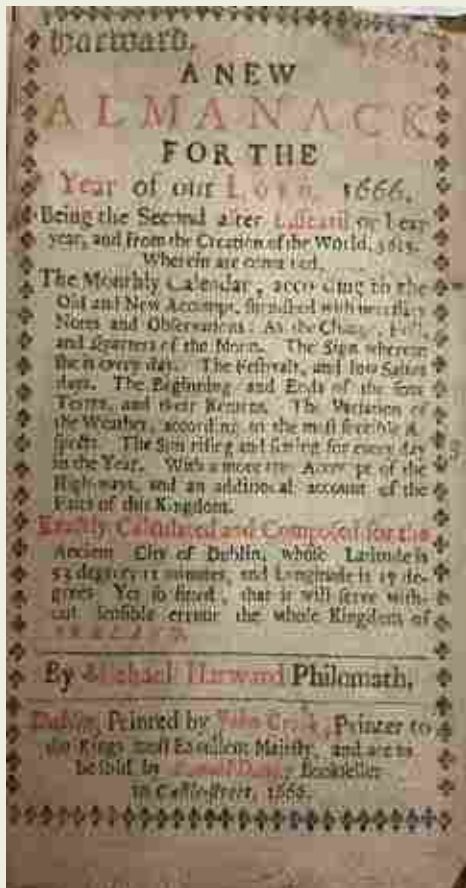 Harward. 1666.
A NEW
ALMANACK
FOR THE
Year of our LORD, 1666.
Being the Second after or Leap
year, and from the Creation of the World, 5615.
Wherein are contained,
The Monthly Calendar, according to the
Old and New Accompt, furnished with necessary
Notes and Observations: As the Change, Full,
and Quarters of the Moon. The Sign wherein
she is every day. The Festivals, and Saints
days. The Beginning and Ends of the four
Terms, and their Returns. The Variation of
the Weather, according to the most sensible A-
spects. The Sun rising and setting for every day
in the Year. With a more Accompt of the
High-ways, and an additional account of the
Fairs of this Kingdom.
Exactly Calculated and Composed for the
Ancient City of Dublin, whose Latitude is
53 degrees 11 minutes, and Longitude is de-
grees Yet so fitted, that it will serve with-
out sensible errour the whole Kingdom of
IRELAND.
By Michael Harward Philomath.
Dublin, Printed by John Crook, Printer to
the Kings most Excellent Majesty, and are to
be sold by Bookseller
in Castle-street, 1666.